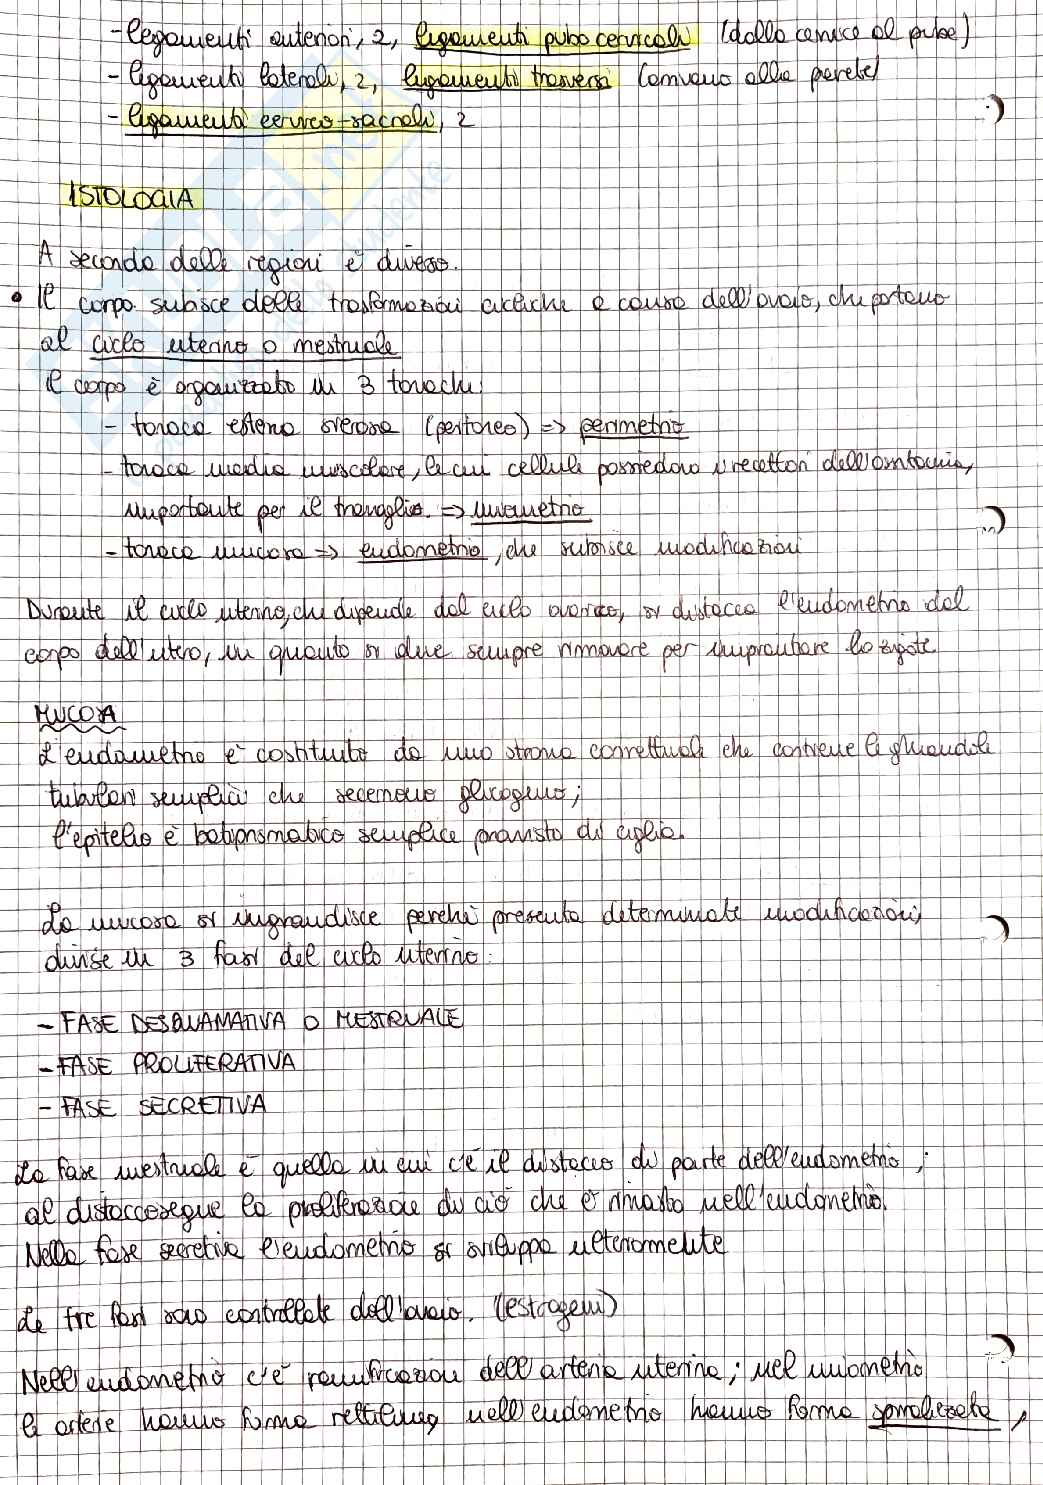 - legamenti anteriori, 2, ligamenti pubo cervicali (dalla cervice al pube)
- ligamenti laterali, 2, ligamenti trasversi (arrivano alla parete)
- ligamenti cervico-sacrali, 2
ISTOLOGIA
A seconda delle regioni è diverso.
• Il corpo subisce delle trasformazioni cicliche a causa dell'ovaio, che portano
al ciclo uterino o mestruale
Il corpo è organizzato in 3 tonache:
- tonaca esterna sierosa (peritoneo) => perimetrio
- tonaca media muscolare, le cui cellule possiedono i recettori dell'ossitocina,
importante per il travaglio. => miometrio
- tonaca mucosa => endometrio, che subisce modificazioni
Durante il ciclo uterino, che dipende dal ciclo ovarico, si distacca l'endometrio del
corpo dell'utero, in quanto si deve sempre rinnovare per impiantare lo zigote.
MUCOSA
L'endometrio è costituito da uno stroma connettivale che contiene le ghiandole
tubulari semplici che secernono glicogeno;
l'epitelio è batiprismatico semplice provvisto di ciglia.
La mucosa si ingrandisce perchè presenta determinate modificazioni,
divise in 3 fasi del ciclo uterino:
- FASE DESQUAMATIVA O MESTRUALE
- FASE PROLIFERATIVA
- FASE SECRETIVA
La fase mestruale è quella in cui c'è il distacco di parte dell'endometrio;
al distacco segue la proliferazione di ciò che è rimasto nell'endometrio.
Nella fase secretiva l'endometrio si sviluppa ulteriormente
Le tre fasi sono controllate dall'ovaio. (estrogeni)
Nell'endometrio c'è ramificazioni dell'arteria uterina; nel miometrio
le arterie hanno forma rettilinea, nell'endometrio hanno forma spiralizzata,